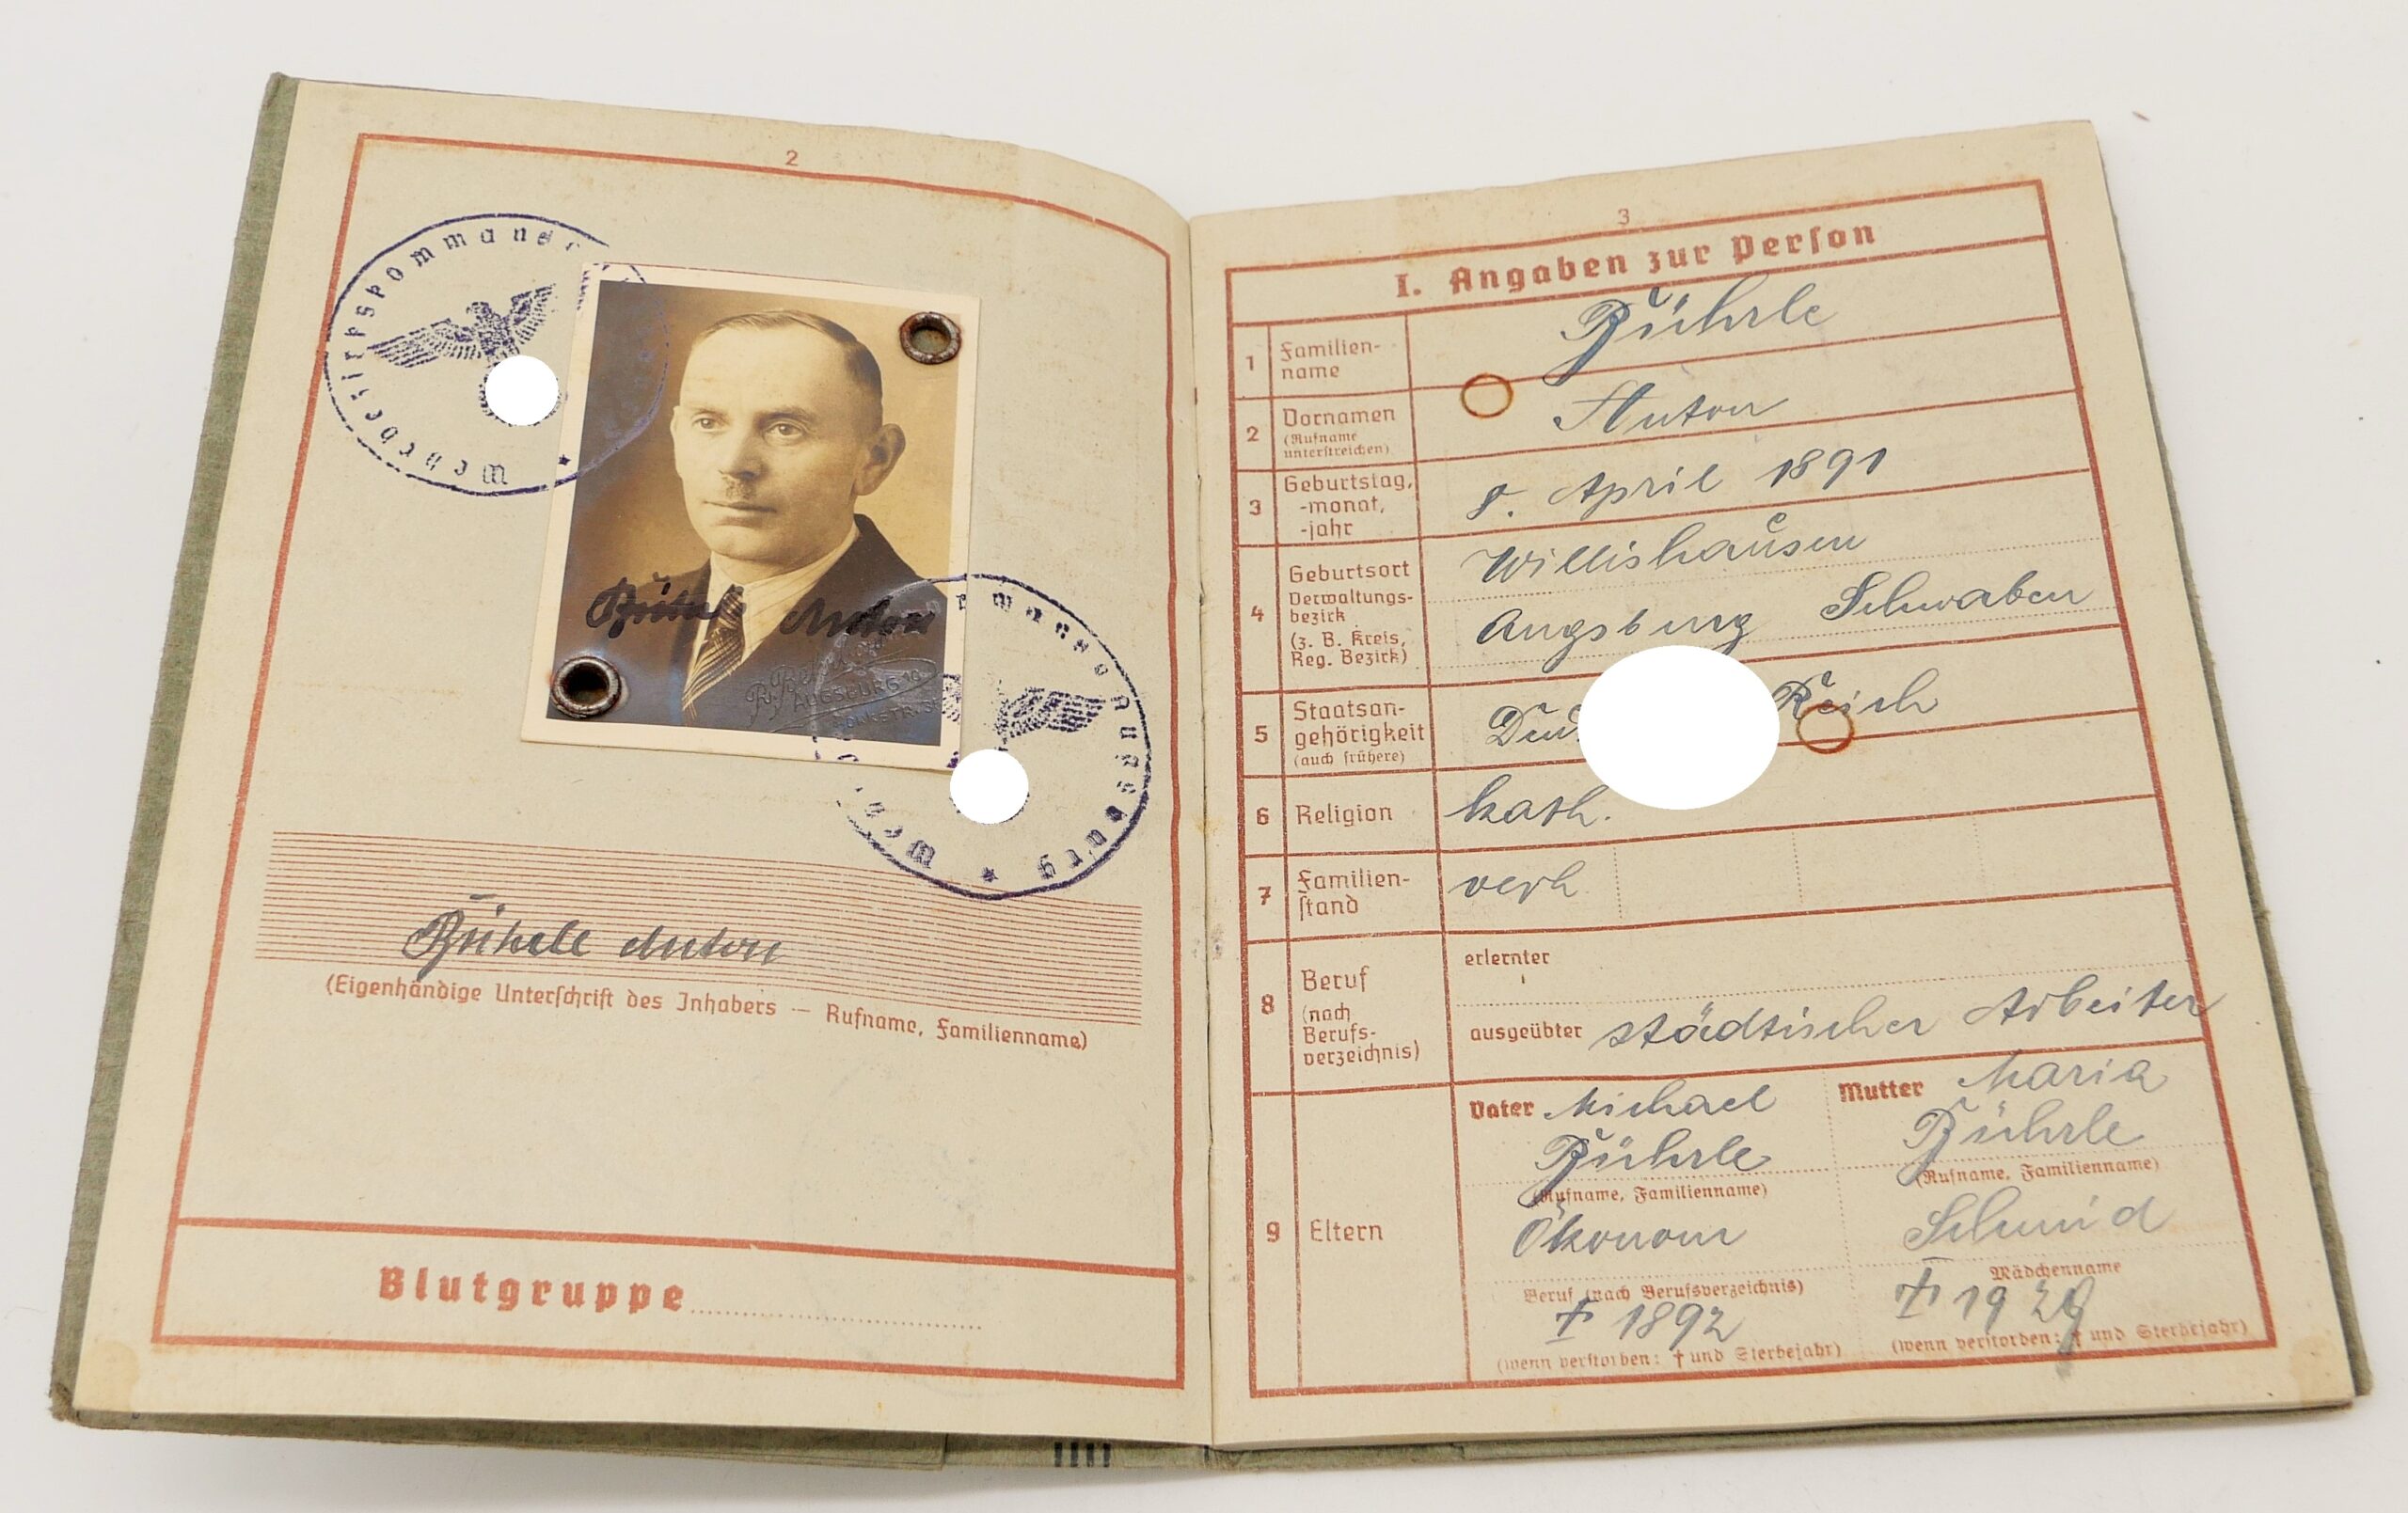 2
Wehrbezirkskommando
Bührle Anton
AUGSBURG
Augsburg
Bührle Anton
(Eigenhändige Unterschrift des Inhabers — Rufname, Familienname)
Blutgruppe
3
I. Angaben zur Person
1 Familien-
name
Bührle
2 Vornamen
(Rufname
unterstreichen)
Anton
3 Geburtstag,
-monat,
-jahr
8. April 1891
4 Geburtsort
Verwaltungs-
bezirk
(z. B. Kreis,
Reg. Bezirk)
Willishausen
Augsburg Schwaben
5 Staatsan-
gehörigkeit
(auch frühere)
Reich
6 Religion
kath.
7 Familien-
stand
verh.
8 Beruf
(nach
Berufs-
verzeichnis)
erlernter
ausgeübter städtischer Arbeiter
9 Eltern
Vater Michael
Bührle
(Rufname, Familienname)
Ökonom
Beruf (nach Berufsverzeichnis)
† 1892
(wenn verstorben: † und Sterbejahr)
Mutter Maria
Bührle
(Rufname, Familienname)
Schmid
Mädchenname
† 1929
(wenn verstorben: † und Sterbejahr)